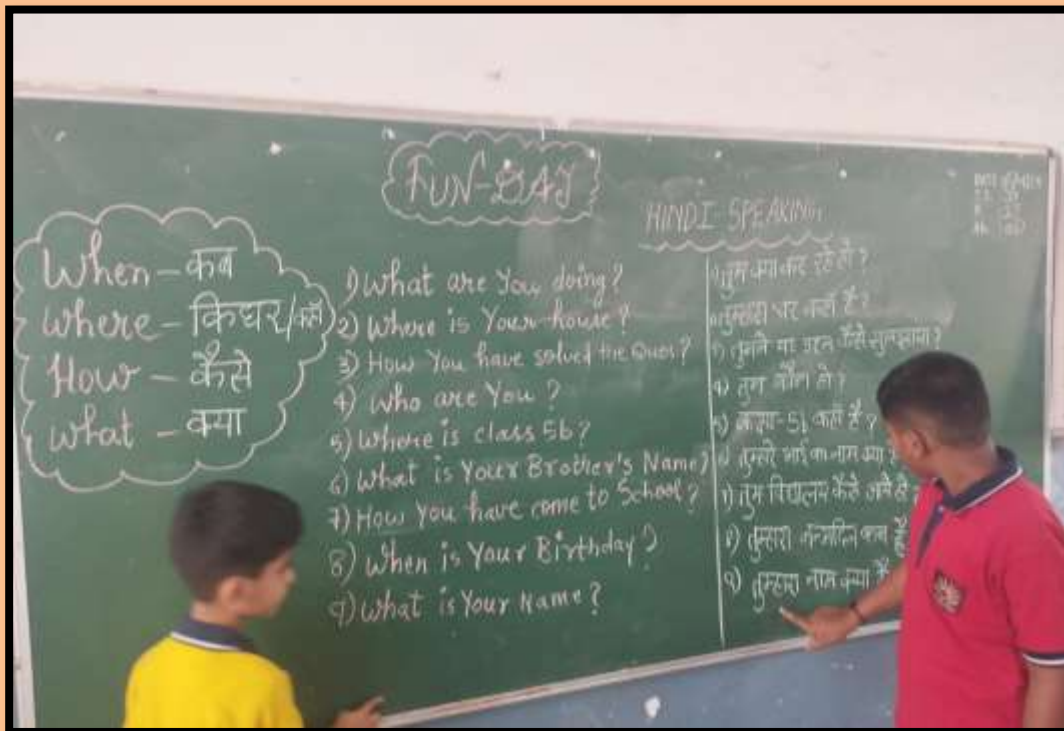 FUN-DAY
HINDI-SPEAKING
When - कब
Where - किधर/कहाँ
How - कैसे
What - क्या
1) What are You doing?
2) Where is Your house?
3) How You have solved the Ques?
4) Who are You?
5) Where is class 5b?
6) What is Your Brother's Name?
7) How You have come to School?
8) When is Your Birthday?
9) What is Your Name?
1) तुम क्या कर रहे हो?
2) तुम्हारा घर कहाँ है?
3) तुमने यह प्रश्न कैसे सुलझाया?
4) तुम कौन हो?
5) कक्षा-5b कहाँ है?
6) तुम्हारे भाई का नाम क्या
7) तुम विद्यालय कैसे आये हो
8) तुम्हारा जन्मदिन कब है
9) तुम्हारा नाम क्या है